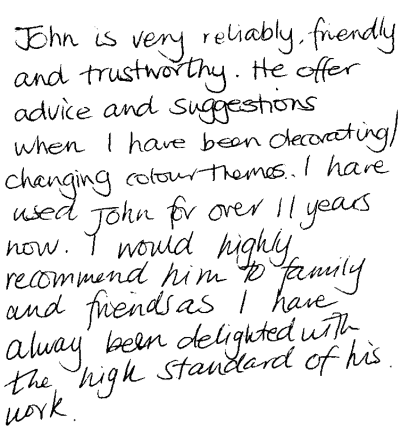 John is very reliably, friendly
and trustworthy. He offer
advice and suggestions
when I have been decorating/
changing colour themes. I have
used John for over 11 years
now. I would highly
recommend him to family
and friends as I have
alway been delighted with
the high standard of his.
work.